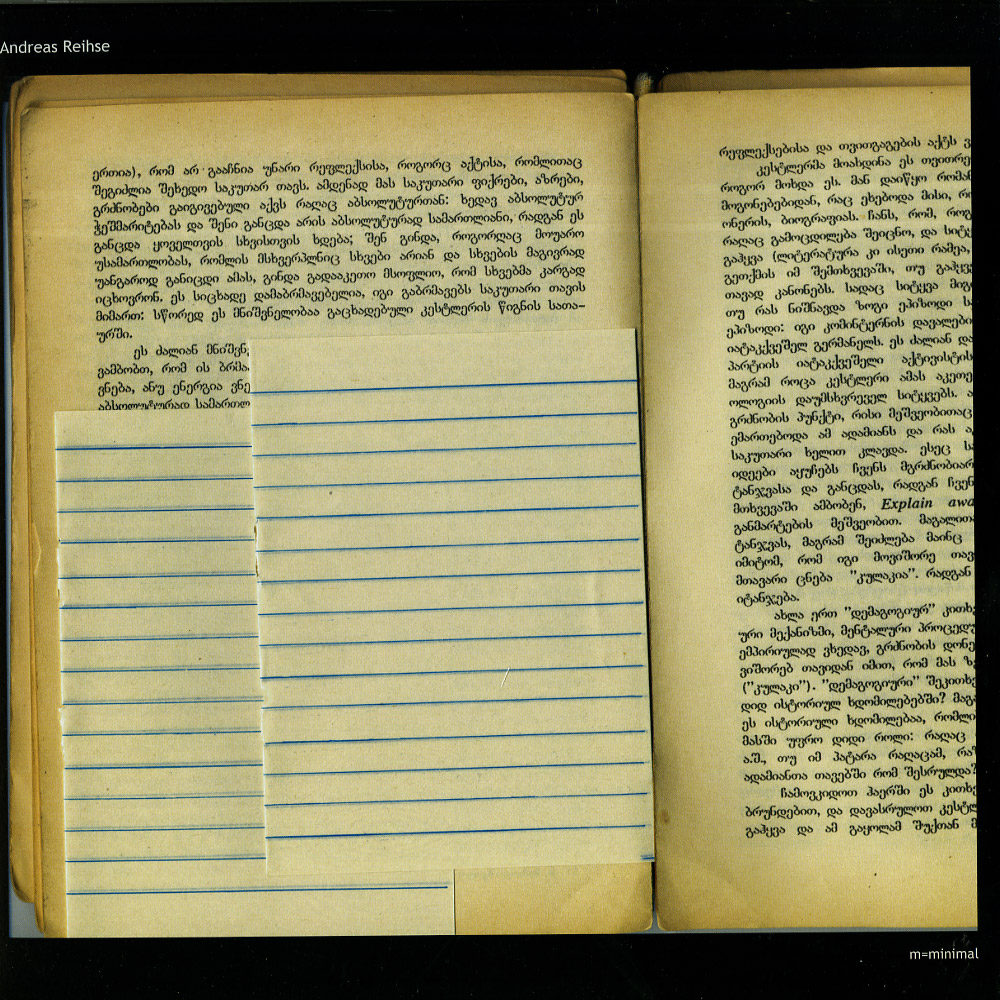 Andreas Reihse
ერთია), რომ არ გააჩნია უნარი რეფლექსისა, როგორც აქტისა, რომლითაც
შეგიძლია შეხედო საკუთარ თავს. ამდენად მას საკუთარი ფიქრები, აზრები,
გრძნობები გაიგივებული აქვს რაღაც აბსოლუტურთან: ხედავ აბსოლუტურ
ჭეშმარიტებას და შენი განცდა არის აბსოლუტურად სამართლიანი, რადგან ეს
განცდა ყოველთვის სხვისთვის ხდება; შენ გინდა, როგორღაც მოუარო
უსამართლობას, რომლის მსხვერპლნიც სხვები არიან და სხვების მაგივრად
უანგაროდ განიცდი ამას, გინდა გადააკეთო მსოფლიო, რომ სხვებმა კარგად
იცხოვრონ. ეს სიცხადე დამაბრმავებელია, იგი გაბრმავებს საკუთარი თავის
მიმართ: სწორედ ეს მნიშვნელობაა გაცხადებული კესტლერის წიგნის სათა–
ურში.
ეს ძალიან მნიშვნ
ვამბობთ, რომ ის ბრმა
ვნება, ანუ ენერგია ვნე
აბსოლუტურად სამართლ
რეფლექსებისა და თვითგაგების აქტს ვ
კესტლერმა მოახდინა ეს თვითრე
როგორ მოხდა ეს. მან დაიწყო რომან
მოგონებებიდან, რაც ეხებოდა მისი, რ
ონერის, ბიოგრაფიას. ჩანს, რომ, როგ
რაღაც გამოცდილება შეიცნო, და სიტყ
გაჰყვა (ლიტერატურა კი ისეთი რამეა,
გეთქმის იმ შემთხვევაში, თუ გაჰყვე
თავად კანონებს. სადაც სიტყვა მიგ
თუ რას ნიშნავდა ზოგი ეპიზოდი ს
ეპიზოდი: იგი კომინტერნის დავალები
იატაკქვეშელ გერმანელს. ეს ძალიან და
პარტიის იატაკქვეშელი აქტივისტის
მაგრამ როცა კესტლერი ამას აკეთე
ოლოგიის დაუმსხვრეველ სიტყვებს. ა
გრძნობის პუნქტი, რისი მეშვეობითაც
ემართებოდა ამ ადამიანს და რას ა
საკუთარი ხელით კლავდა. ესეც ს
იდეები აყუჩებს ჩვენს მგრძნობიარ
ტანჯვასა და განცდას, რადგან ჩვენ
მთხვევაში ამბობენ, Explain awa
განმარტების მეშვეობით. მაგალით
ტანჯვას, მაგრამ შეიძლება მაინც
იმიტომ, რომ იგი მოვიშორე თავ
მთავარი ცნება "კულაკია". რადგან
იტანჯება.
ახლა ერთ "დემაგოგიურ" კითხ
ური მექანიზმი, მენტალური პროცედუ
ემპირიულად ვხედავ, გრძნობის დონე
ვიშორებ თავიდან იმით, რომ მას ზე
("კულაკი"). "დემაგოგიური" შეკითხე
დიდ ისტორიულ ხდომილებებში? მაგ
ეს ისტორიული ხდომილებაა, რომლი
მასში უფრო დიდი როლი: რაღაც
ა.შ., თუ იმ პატარა რაღაცამ, რა
ადამიანთა თავებში რომ შესრულდა?
ჩამოვკიდოთ ჰაერში ეს კითხე
ბრუნდებით, და დავასრულოთ კესტლ
გაჰყვა და ამ გაყოლამ შუქთან მ
m=minimal